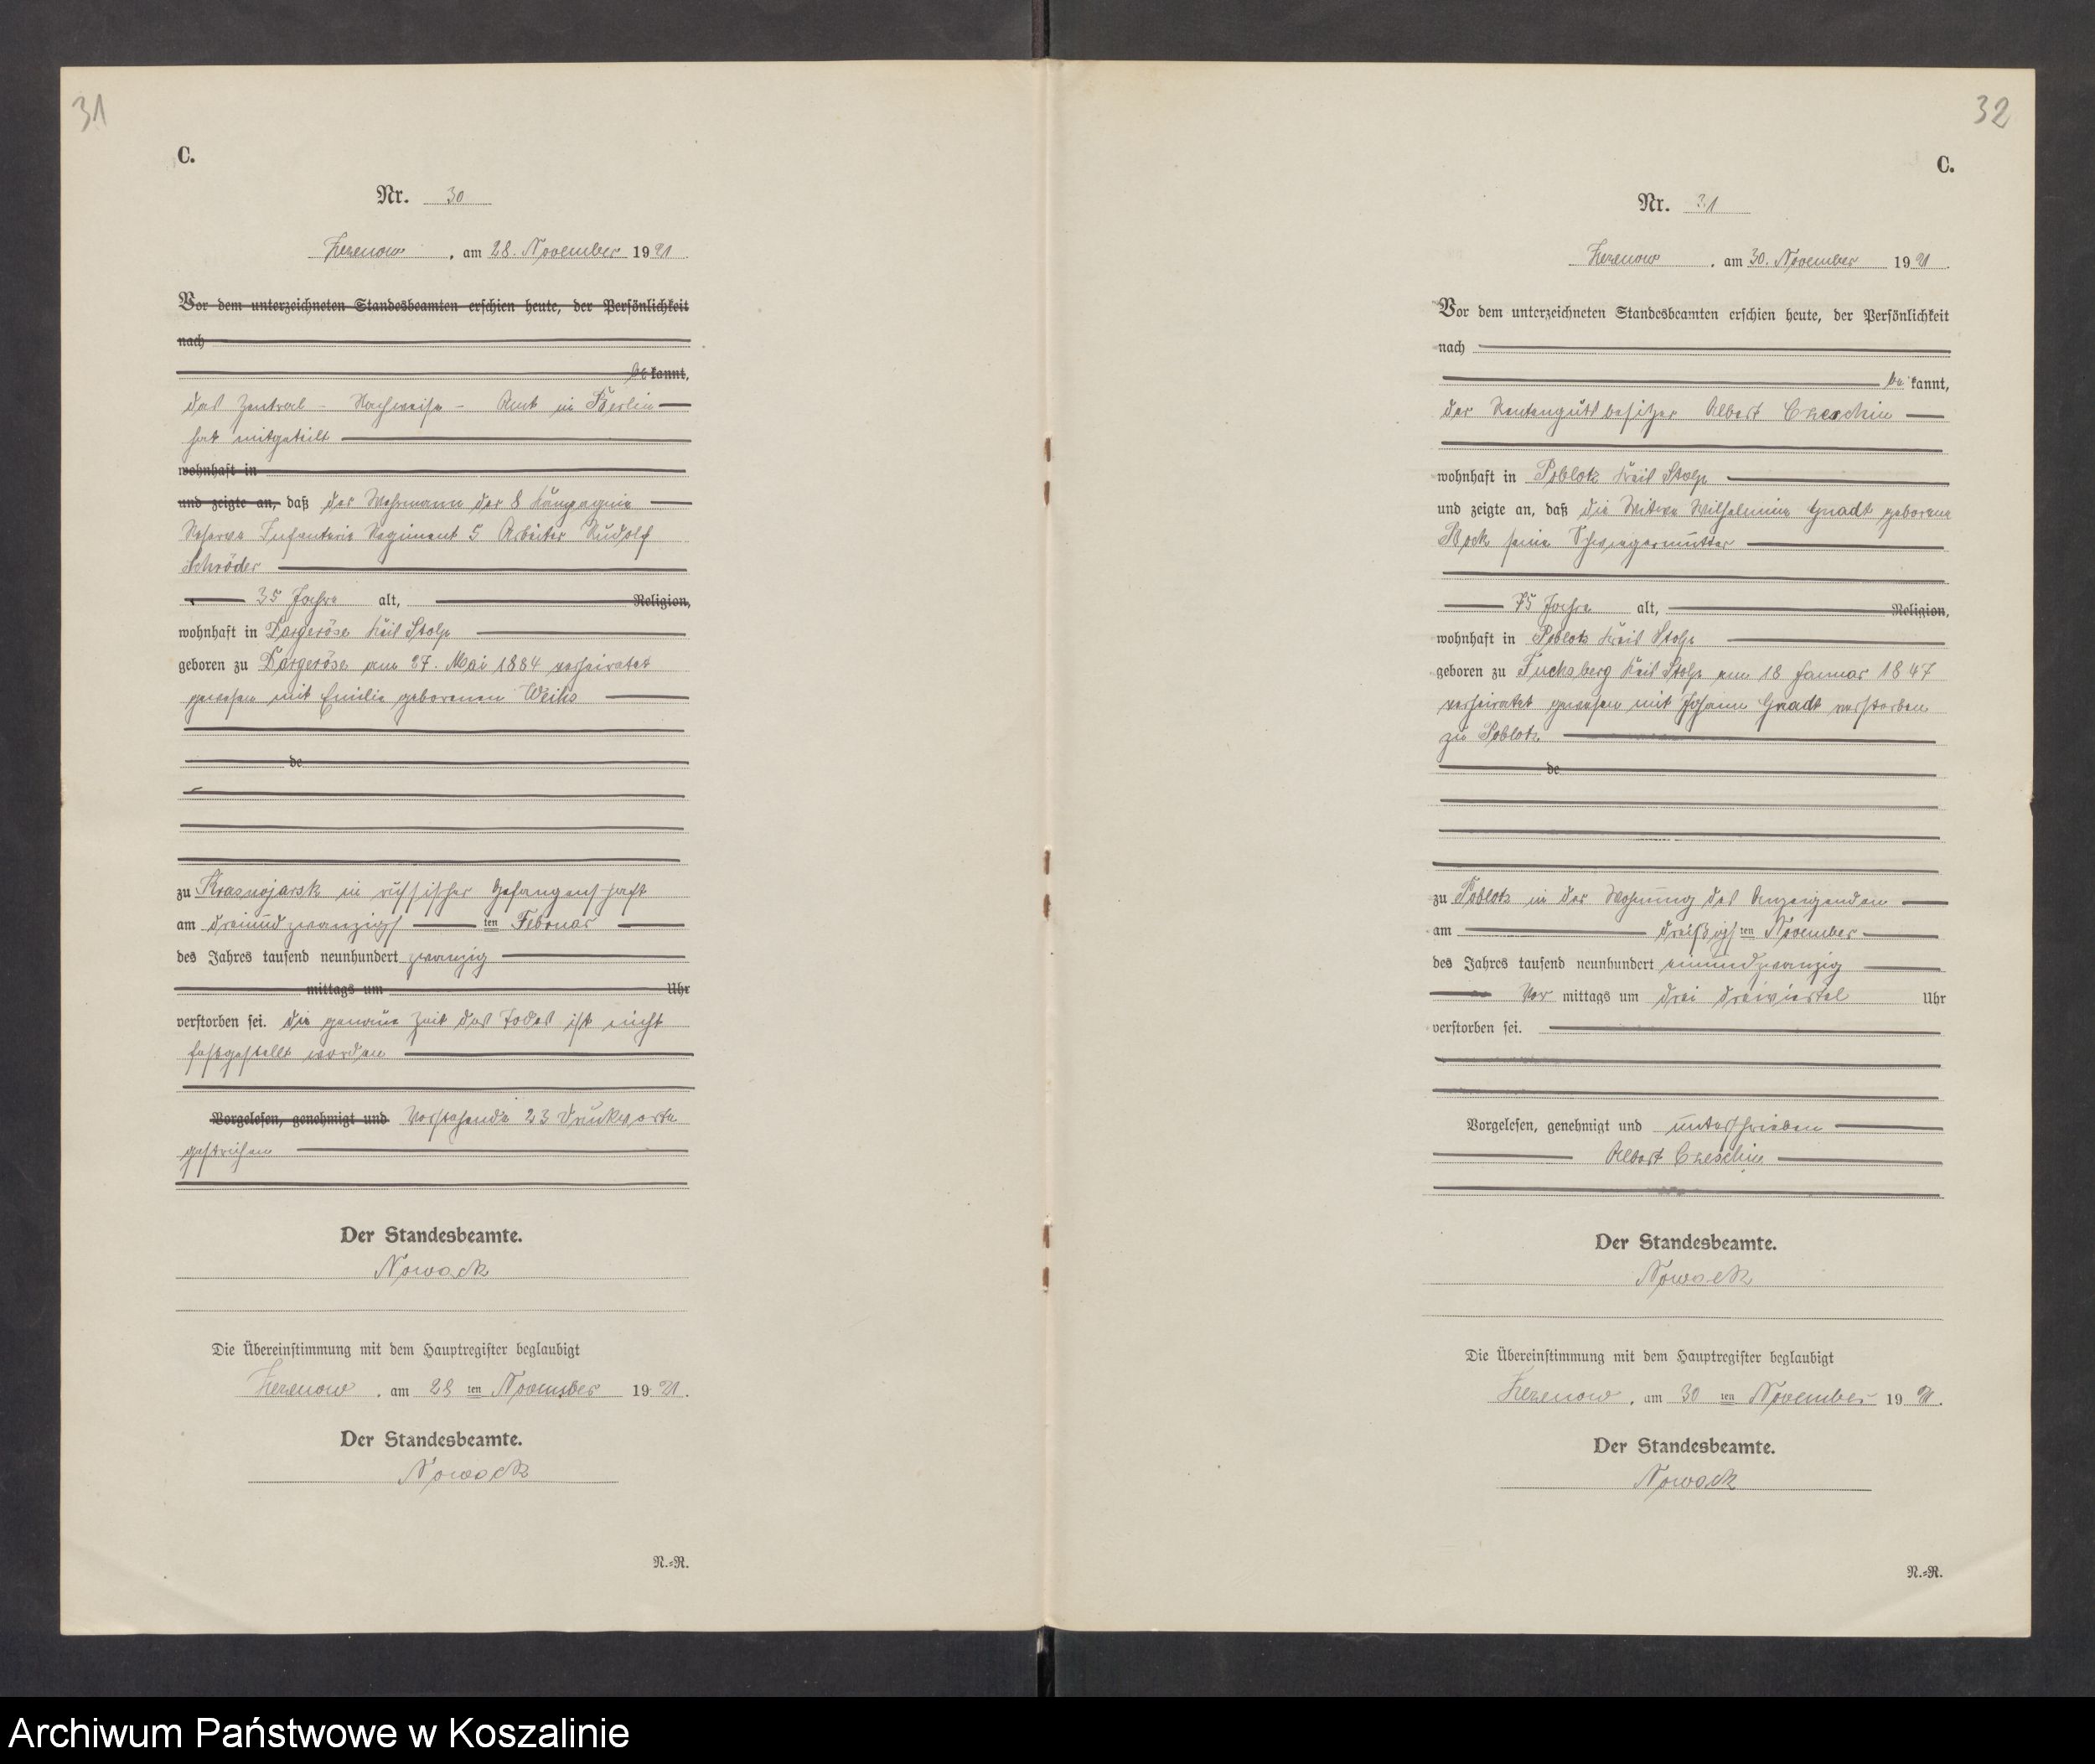 31
C.
Nr. 30
Zezenow, am 28. November 1921.
Vor dem unterzeichneten Standesbeamten erschien heute, der Persönlichkeit
nach
bekannt,
das Zentral - Nachweise - Amt in Berlin
hat mitgeteilt
wohnhaft in
und zeigte an, daß der Wehrmann der 8 Kompagnie
Reserve Infanterie Regiment 5 Arbeiter Rudolf
Schröder
35 Jahre alt, Religion,
wohnhaft in Dargeröse Kreis Stolp
geboren zu Dargeröse am 27. Mai 1884 verheiratet
gewesen mit Emilie geborenen
de
zu Krasnojarsk in russischer Gefangenschaft
am dreiundzwanzigsten Februar
des Jahres tausend neunhundert zwanzig
mittags um Uhr
verstorben sei. die genaue Zeit des Todes ist nicht
festgestellt worden
Vorgelesen, genehmigt und Vorstehende 23 Druckworte
gestrichen
Der Standesbeamte.
Nowack
Die Übereinstimmung mit dem Hauptregister beglaubigt
Zezenow, am 28 ten November 1921.
Der Standesbeamte.
Nowack
N.=R.
32
C.
Nr. 31
Zezenow, am 30. November 1921.
Vor dem unterzeichneten Standesbeamten erschien heute, der Persönlichkeit
nach
bekannt,
der Rentengutsbesitzer Albert Czeschin
wohnhaft in Poblotz Kreis Stolp
und zeigte an, daß die Witwe Wilhelmine Gnadt geborene
Bock seine Schwiegermutter
75 Jahre alt, Religion,
wohnhaft in Poblotz Kreis Stolp
geboren zu Fuchsberg Kreis Stolp am 18 Januar 1847
verheiratet gewesen mit Johann Gnadt verstorben
zu Poblotz
de
zu Poblotz in der Wohnung des Anzeigenden
am dreißigsten November
des Jahres tausend neunhundert einundzwanzig
Vor mittags um drei dreiviertel Uhr
verstorben sei.
Vorgelesen, genehmigt und unterschrieben
Albert Czeschin
Der Standesbeamte.
Nowack
Die Übereinstimmung mit dem Hauptregister beglaubigt
Zezenow, am 30 ten November 1921.
Der Standesbeamte.
Nowack
N.=R.
Archiwum Państwowe w Koszalinie